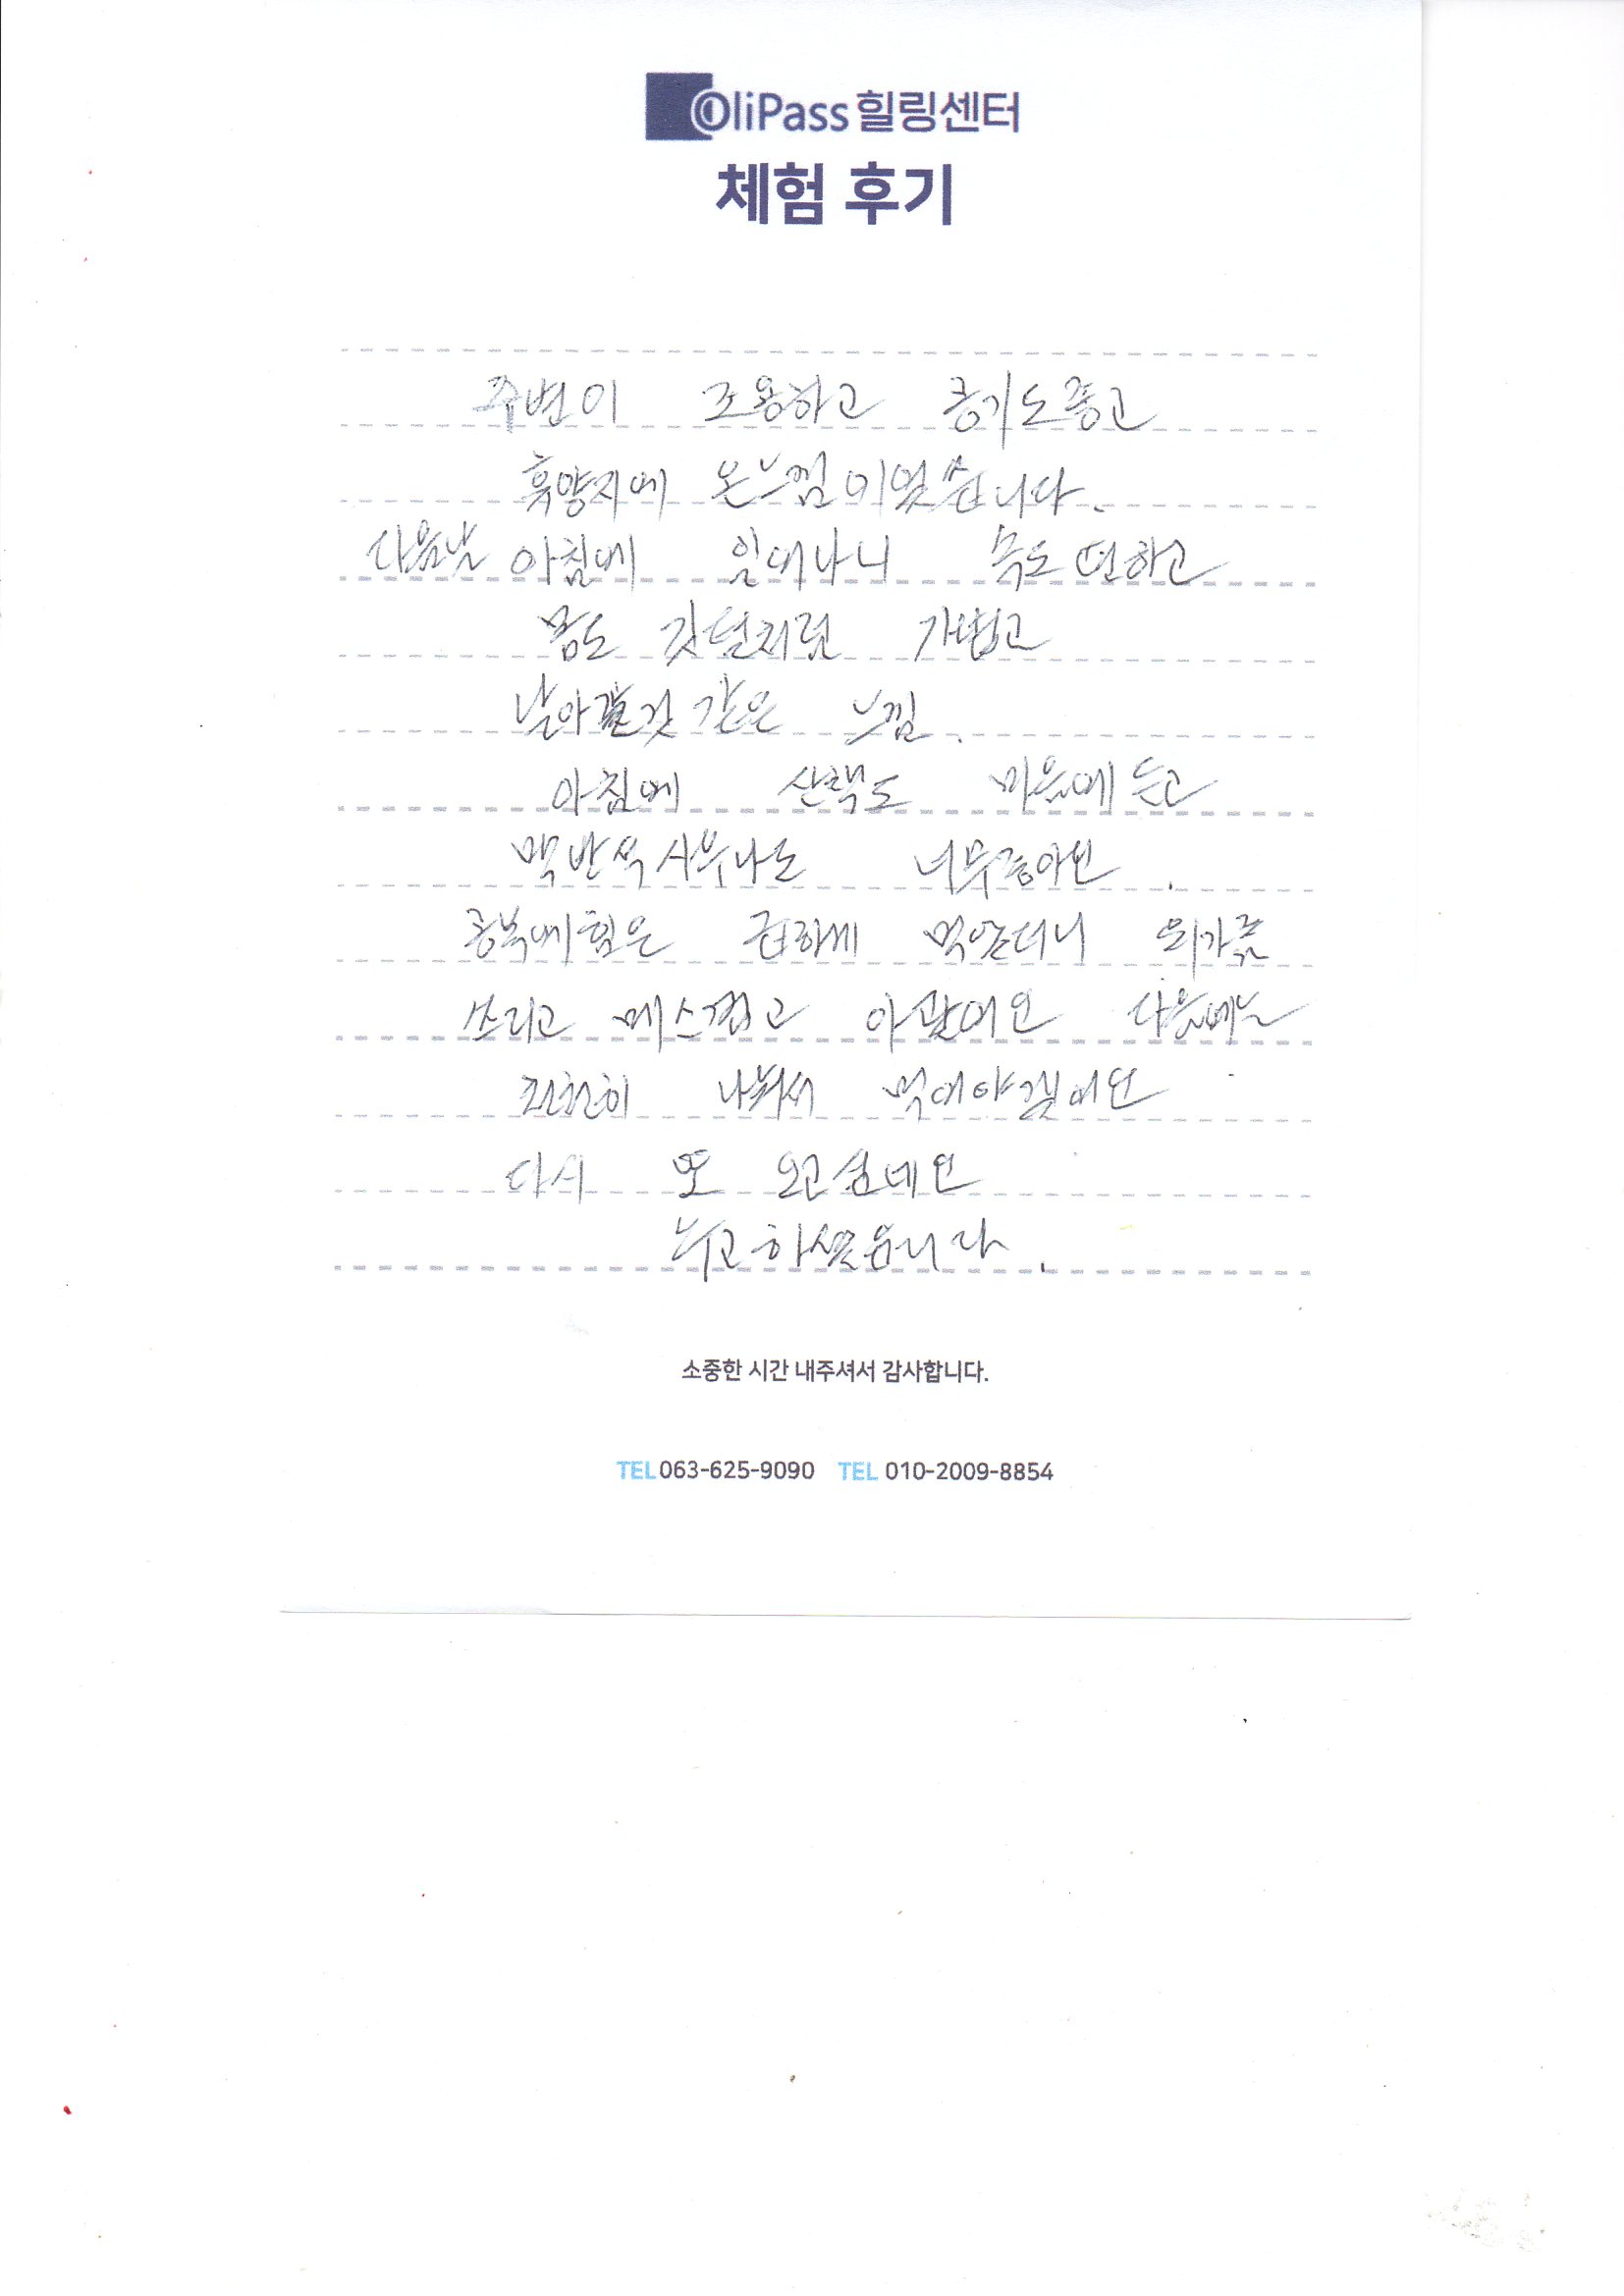 OliPass 힐링센터
체험 후기
주변이 조용하고 공기도 좋고
휴양지에 온 느낌이였습니다.
다음날 아침에 일어나니 속도 편하고
몸도 깃털처럼 가볍고
날아갈것 같은 느낌.
아침에 산책도 마음에 들고
맥반석 사우나도 너무좋아요.
공복에 힘은 급하게 먹었더니 위가쫌
쓰리고 메스껍고 아팠어요 다음에는
천천히 나눠서 먹어야겠어요
다시 또 오고싶네요
수고하셨읍니다.
소중한 시간 내주셔서 감사합니다.
TEL 063-625-9090 TEL 010-2009-8854